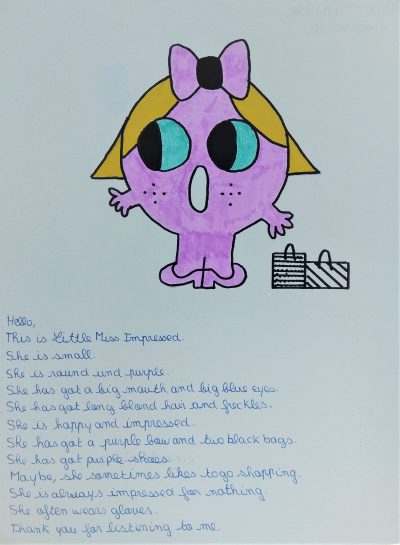 Hello,
This is Little Miss Impressed.
She is small.
She is round und purple.
She has got a big mouth and big blue eyes.
She has got long blond hair and freckles.
She is happy and impressed.
She has got a purple bow and two black bags.
She has got purple shoes.
Maybe, she sometimes likes to go shopping.
She is always impressed for nothing.
She often wears gloves.
Thank you for listening to me